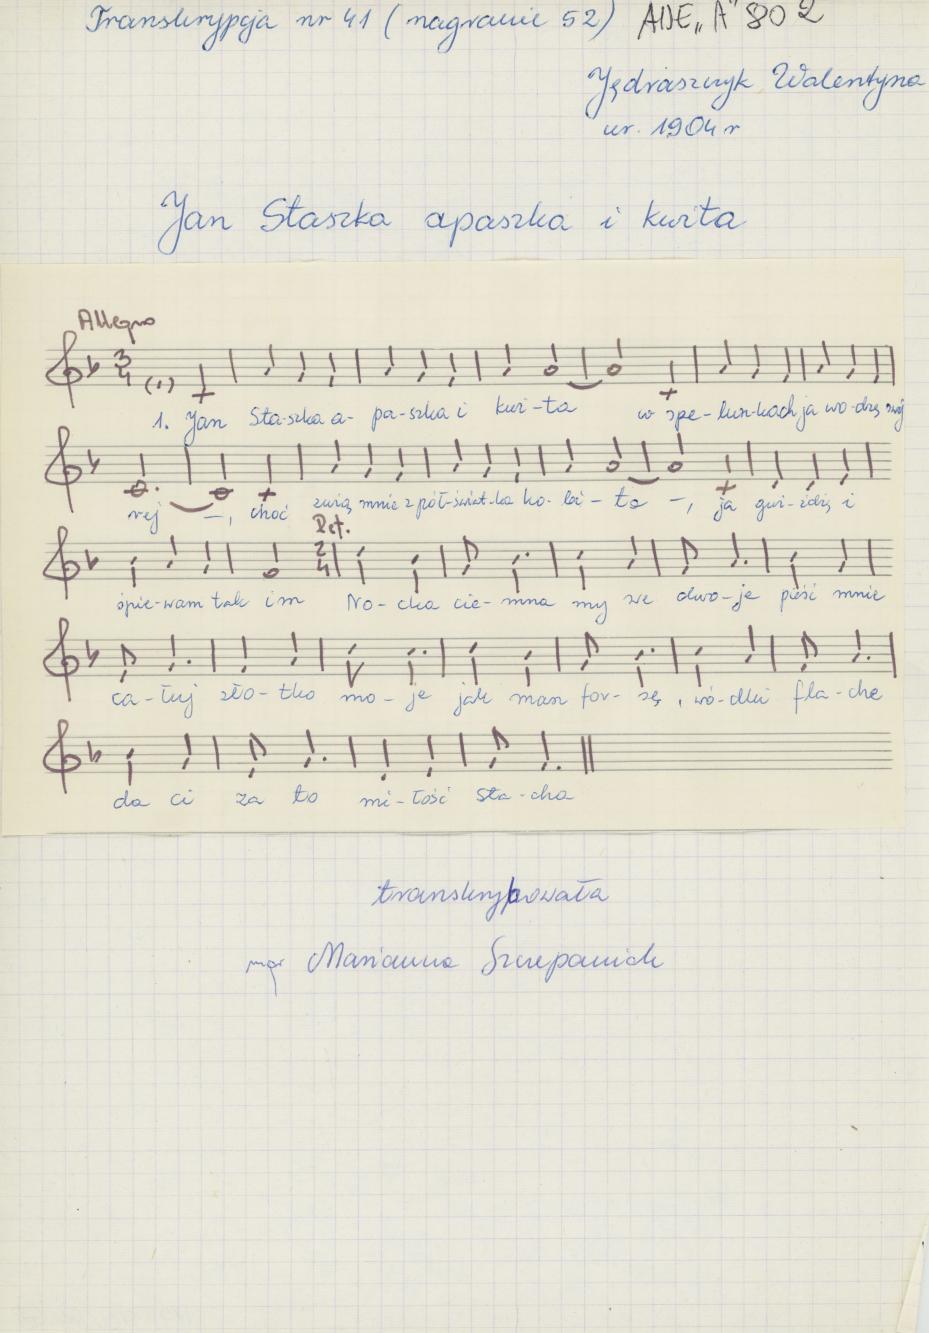 Transkrypcja nr 41 (nagranie 52) ADE „A" 802
Jędraszczyk Walentyna
ur. 1904 r
Jan Staszka apaszka i kwita
Allegro
3 4 (1)
1. Jan Sta-szka a- pa-szka i kwi-ta w spe-lun-kach ja wo-dzę swój
rej -, choć zwią mnie z pół-świat-ka ko-bi-ta -, ja gwi-żdżę i
Ref.
2 4
śpie-wam tak im No-cka cie-mna my we dwo-je pieść mnie
ca-łuj zło-tko mo-je jak mam for-sę, wó-dki fla-chę
da ci za to mi-łość Sta-cha
transkrybowała
mgr Marianna Szczepaniak